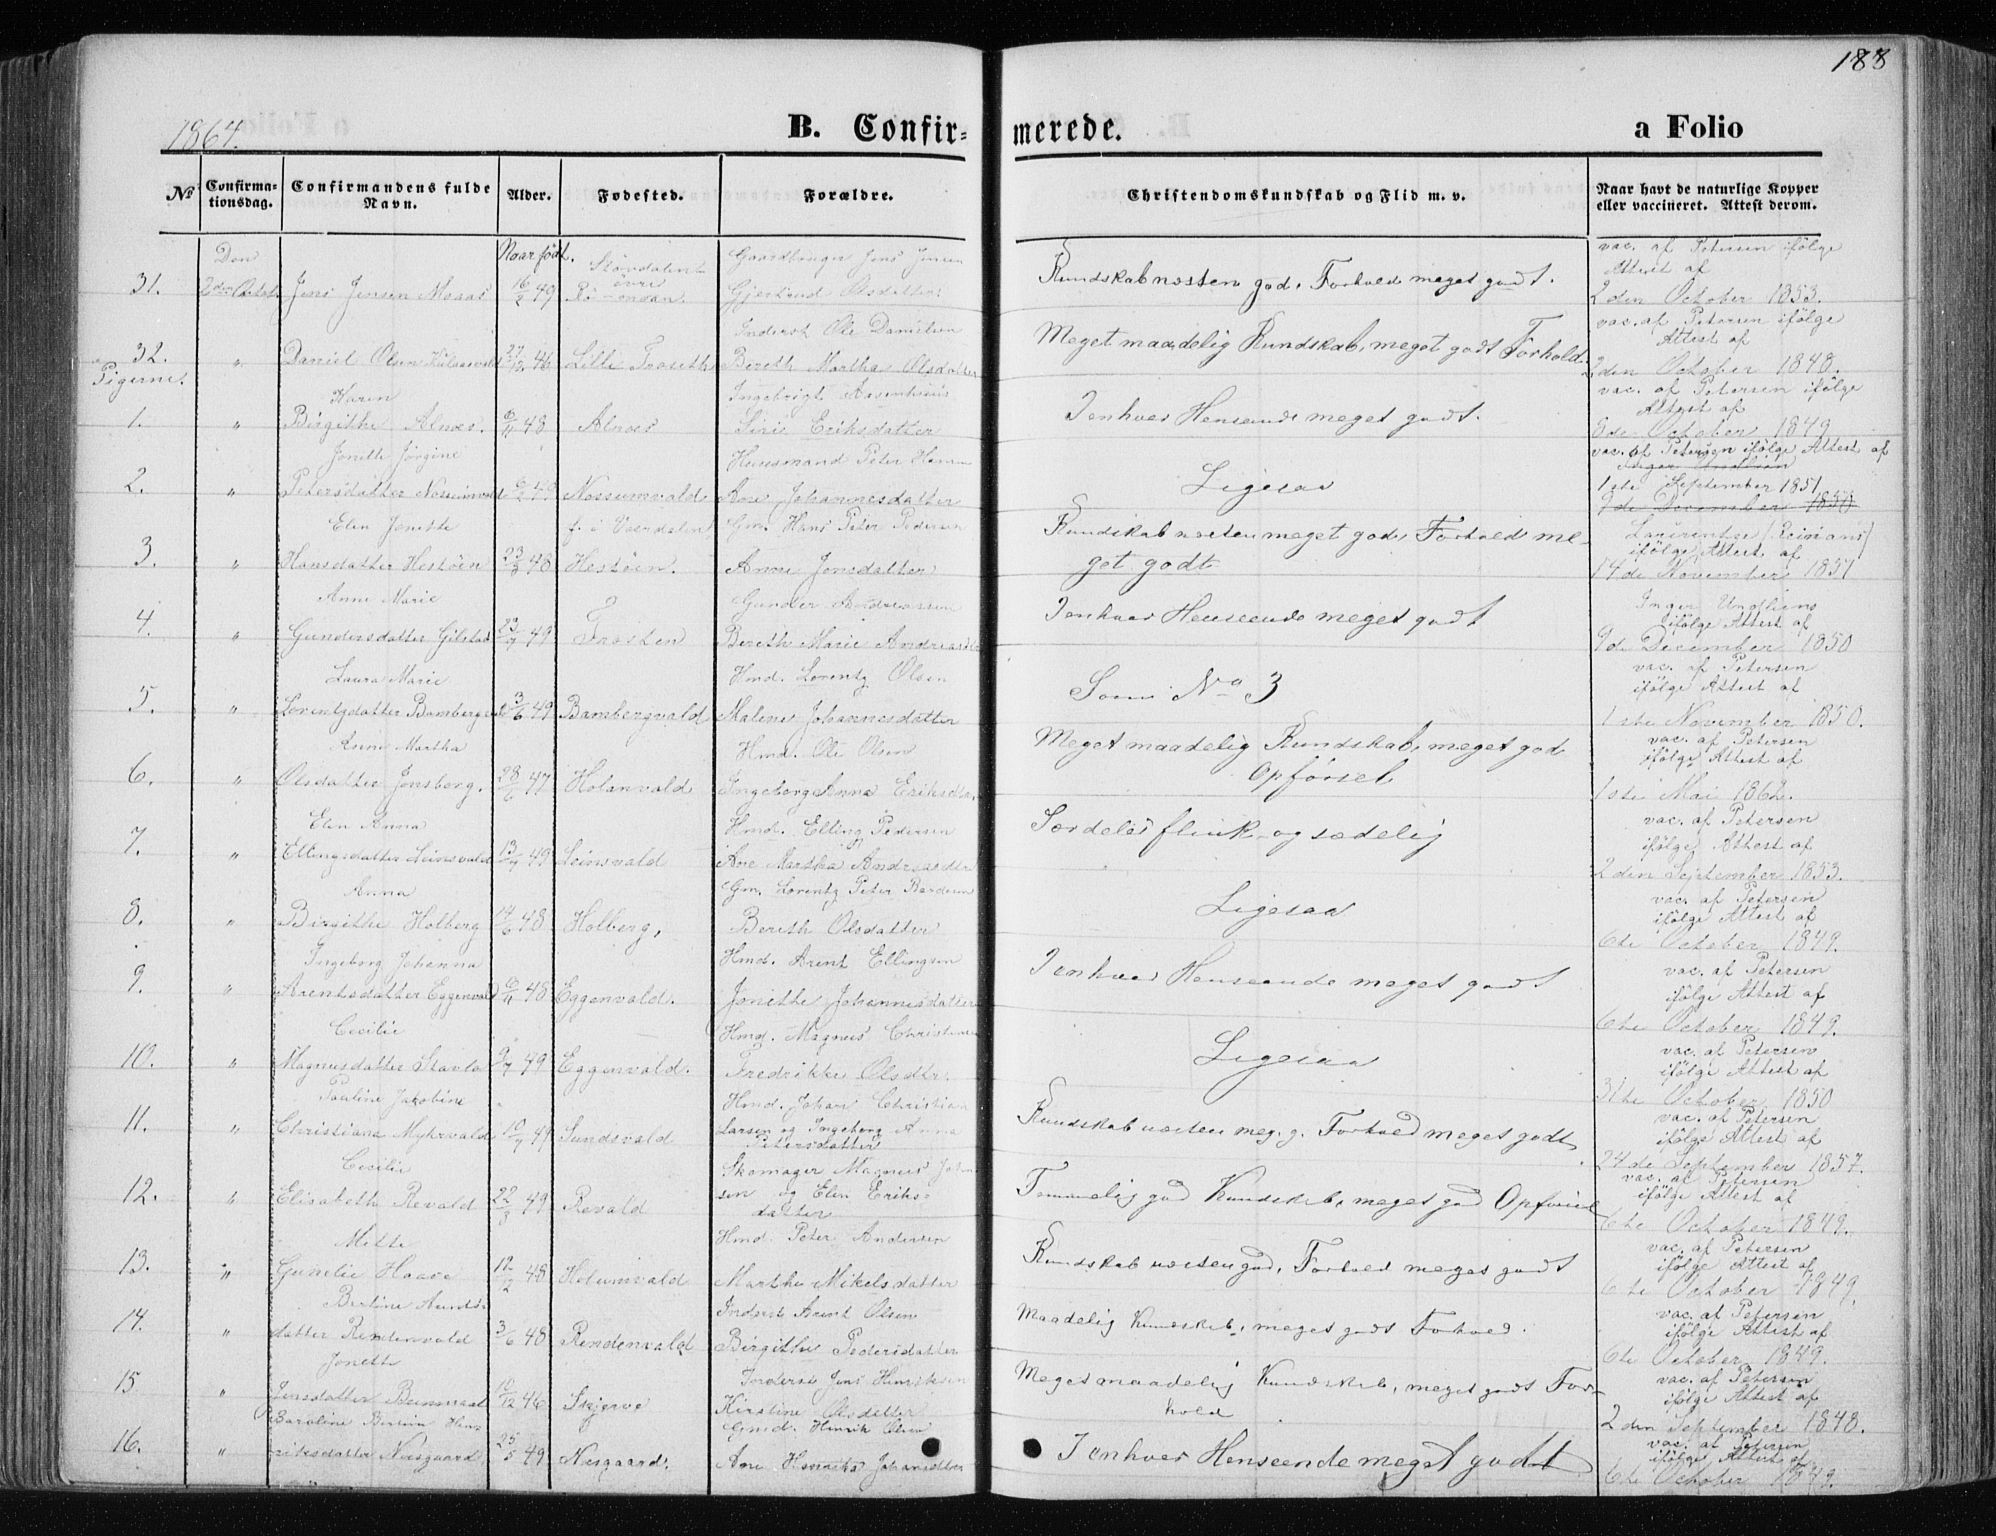 188
1864.
B. Confir-
merede.
a Folio
No
Confirma-
tionsdag.
Confirmandens fulde
Navn.
Alder.
Fødested.
Forældre.
Christendomskundskab og Flid m. v.
Naar havt de naturlige Kopper
eller vaccineret. Attest derom.
Den
Naar født.
Størdalen
Gaardbruger Jens Jensen
vac. af Petersen ifølge
Attest af
31.
Jens Jensen Moaas
16/2 49
øvre
Gjertrud Olsdatter
Kundskab næsten god. Forhold meget godt.
2den October 1853.
Inderst Ole Danielsen
vac. af Petersen ifølge
Attest af
32.
"
Daniel Olsen
27/12 46
Lille Troseth
Bereth Martha Olsdatter
Meget maadelig Kundskab, meget godt Forhold.
2den October 1848.
Pigerne.
Karen
Ingebrigt
vac. af Petersen ifølge
Attest af
1.
"
Birgithe Alnæs.
6/11 48
Alnæs
Siri Eriksdatter
I enhver Henseende meget godt.
October 1849
Jonette Jørgine
Huusmand Peter Hansen
vac. af Petersen ifølge Attest af
2.
"
Petersdatter
Nossumvald
Ane Johannesdatter
Ligesaa
1ste September 1851
9de December 1850
Elen Jonette
f. i Værdalen
Gm. Hans Peter Pedersen
3.
"
Hansdatter Hestøen
23/3 48
Hestøen.
Anne Jonsdatter
Kundskab næsten meget god, Forhold me-
get godt
ifølge Attest af
14de November 1851
Anne Marie
Gunder Andreassen
Inger Undlien
ifølge Attest af
4.
"
Gundersdatter Gilstad
23/7 49
Frosten
Bereth Marie
I enhver Henseende meget godt
9de December 1850
Laura Marie
Hmd. Lorentz Olsen
vac. af Petersen
ifølge Attest af
5.
"
Lorentzdatter
3/6 49
Bambergvald
Malene Johannesdatter
Som No 3
1ste November 1850.
Anne Martha
Hmd. Ole Olsen
vac. af Petersen
ifølge Attest af
6.
"
Olsdatter Jonsberg.
28/6 47
Holanvald
Ingeborg Anna
Meget maadelig Kundskab, meget god
Opførsel
1ste Mai 1862.
Elen Anna
Hmd. Elling Pedersen
vac. af Petersen
ifølge Attest af
7.
"
Ellingsdatter Leinsvald
13/7 49
Leinsvald
Ane Martha
Særdeles flink og sædelig
2den September 1853.
Anna
Gm. Lorentz Peter
vac. af Petersen
ifølge Attest af
8.
"
Birgithe Holberg
14/6 48
Holberg,
Bereth Olsdatter
Ligesaa
6te October 1849.
Ingeborg Johanna
Hmd. Arent Ellingsen
vac. af Petersen
ifølge Attest af
9.
"
Arentsdatter Eggenvald
6/11 48
Eggenvald.
Jonethe Johannesdatter
I enhver Henseende meget godt
6te October 1849.
Cecilie
Hmd. Magnus
vac. af Petersen
ifølge Attest af
10.
"
Magnusdatter
9/7 49
Eggenvald.
Fredrikke Olsdtr.
Ligesaa
October 1850
Pauline Jakobine
Hmd. Johan Christian
vac. af Petersen
ifølge Attest af
11.
"
Christiana Myhrvald
10/7 49
Sundsvald
Larsen og Ingeborg Anna
Petersdatter
Kundskab næsten meg. g. Forhold meget godt
24de September 1857.
Cecilie
Skomager Magnus
vac. af Petersen
ifølge Attest af
12.
"
Elisabeth Revald
22/3 49
Revald
sen og Elen Eriks-
datter
Temmelig god Kundskab, meget god Opførsel
6te October 1849.
Mette
Hmd. Peter Andersen
vac. af Petersen
ifølge Attest af
13.
"
Gunelie Haave
12/2 48
Holumvald
Martha Mikelsdatter
Kundskab næsten god, Forhold meget godt
6te October 1849.
Berline Arents-
Inderst Arent Olsen
vac. af Petersen
ifølge Attest af
14.
"
datter Rendenvald
3/6 48
Rendenvald
Birgithe Pedersdatter
Maadelig Kundskab, meget godt Forhold.
6te October 1849.
Jonette
Inderst Jens Henriksen
vac. af Petersen
ifølge Attest af
15
"
Jensdatter
10/12 46
Skjerve
Kirstine Olsdatter
Meget maadelig Kundskab, meget godt For-
hold
2den September 1848.
Caroline
Gmd. Henrik Olsen
vac. af Petersen
ifølge Attest af
16.
"
riksdatter Nesgaard
25/5 49
Nesgaard.
Ane
I enhver Henseende meget godt
6te October 1849.